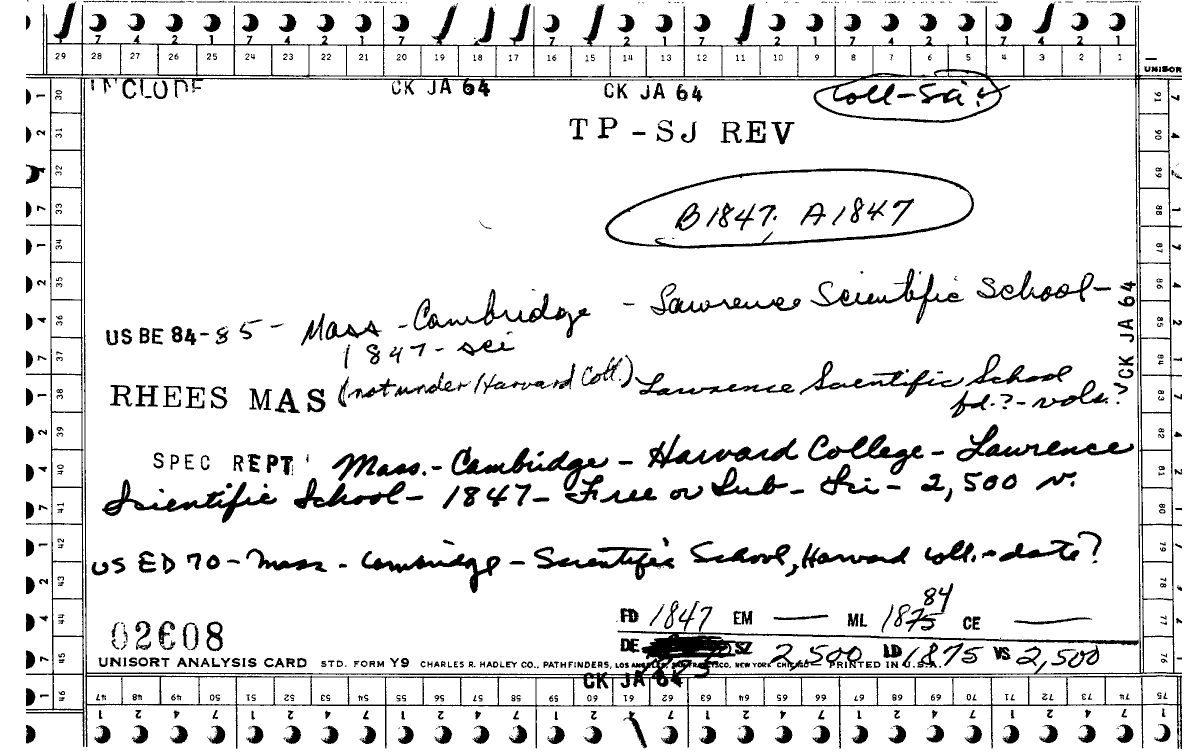 7 4 2 1 7 4 2 1 7 4 2 1 7 4 2 1
29 28 27 26 25 24 23 22 21 20 19 18 17 16 15 14 13 12 11 10 9 8 7 6 5 4 3 2 1
UNISOR
INCLUDE CK JA 64 CK JA 64 Coll-Sci
TP-SJ REV
B1847, A1847
US BE 84-85- Mass-Cambridge - Lawrence Scientific School-
1847-sci
CK JA 64
RHEES MAS (not under Harvard Coll.) Lawrence Scientific School
fd.?-vols.?
SPEC REPT Mass.-Cambridge-Harvard College-Lawrence
Scientific School-1847-Free or Sub-Sci-2,500 v.
US ED 70-Mass-Cambridge-Scientific School, Harvard Coll.-date?
84
FD 1847 EM — ML 1875 CE —
02608
DE SZ 2,500 LD 1875 VS 2,500
UNISORT ANALYSIS CARD STD. FORM Y9 CHARLES R. HADLEY CO., PATHFINDERS, LOS ANGELES, SAN FRANCISCO, NEW YORK CHICAGO PRINTED IN U.S.A.
CK JA 64
30 31 32 33 34 35 36 37 38 39 40 41 42 43 44 45 46
91 90 89 88 87 86 85 84 83 82 81 80 79 78 77 76
47 48 49 50 51 52 53 54 55 56 57 58 59 60 61 62 63 64 65 66 67 68 69 70 71 72 73 74 75